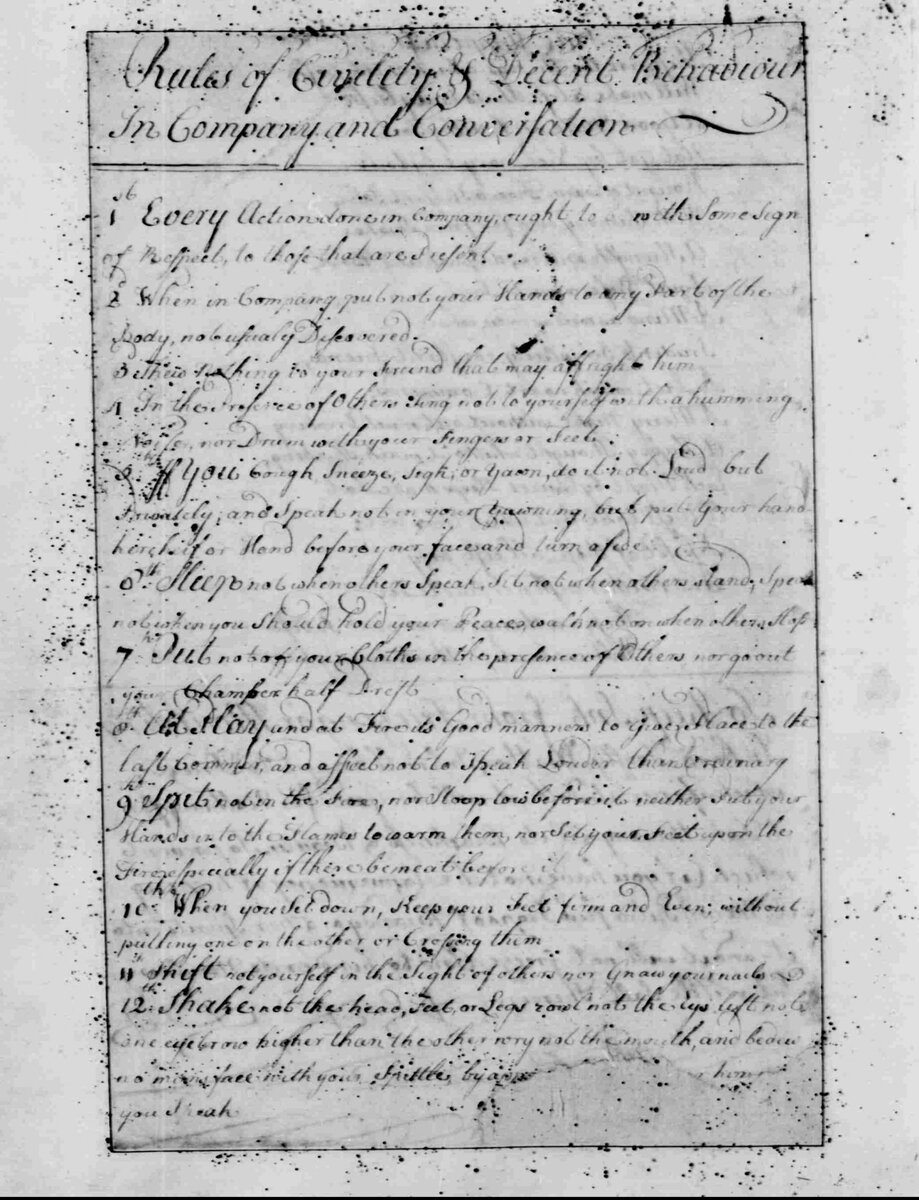 Rules of Civility & Decent Behaviour
In Company and Conversation
1st Every Action done in Company, ought to be with Some Sign
of Respect, to those that are Present.
2d When in Company, put not your Hands to any Part of the
Body, not usualy Discovered.
3 Shew Nothing to your Freind that may affright him
4 In the Presence of Others Sing not to yourself with a humming
Noise, nor Drum with your Fingers or Feet
5th If You Cough, Sneeze, Sigh, or Yawn, do it not Loud but
Privately; and Speak not in your Yawning, but put Your hand
kercheif or Hand before your face and turn aside
6th Sleep not when others Speak, Sit not when others stand, Speak
not when you Should hold your Peace, walk not on when others Stop
7th Put not off your Cloths in the presence of Others, nor go out
your Chamber half Drest
8th At Play and at Fire its Good manners to Give Place to the
last Commer, and affect not to Speak Louder than Ordinary
9th Spit not in the Fire, nor Stoop low before it neither Put your
Hands into the Flames to warm them, nor Set your Feet upon the
Fire especially if there be meat before it
10th When you Sit down, Keep your Feet firm and Even, without
putting one on the other or Crossing them
11th Shift not yourself in the Sight of others nor Gnaw your nails
12th Shake not the head, Feet, or Legs rowl not the Eys lift not
one eyebrow higher than the other wry not the mouth, and bedew
no mans face with your Spittle, by
you Speak